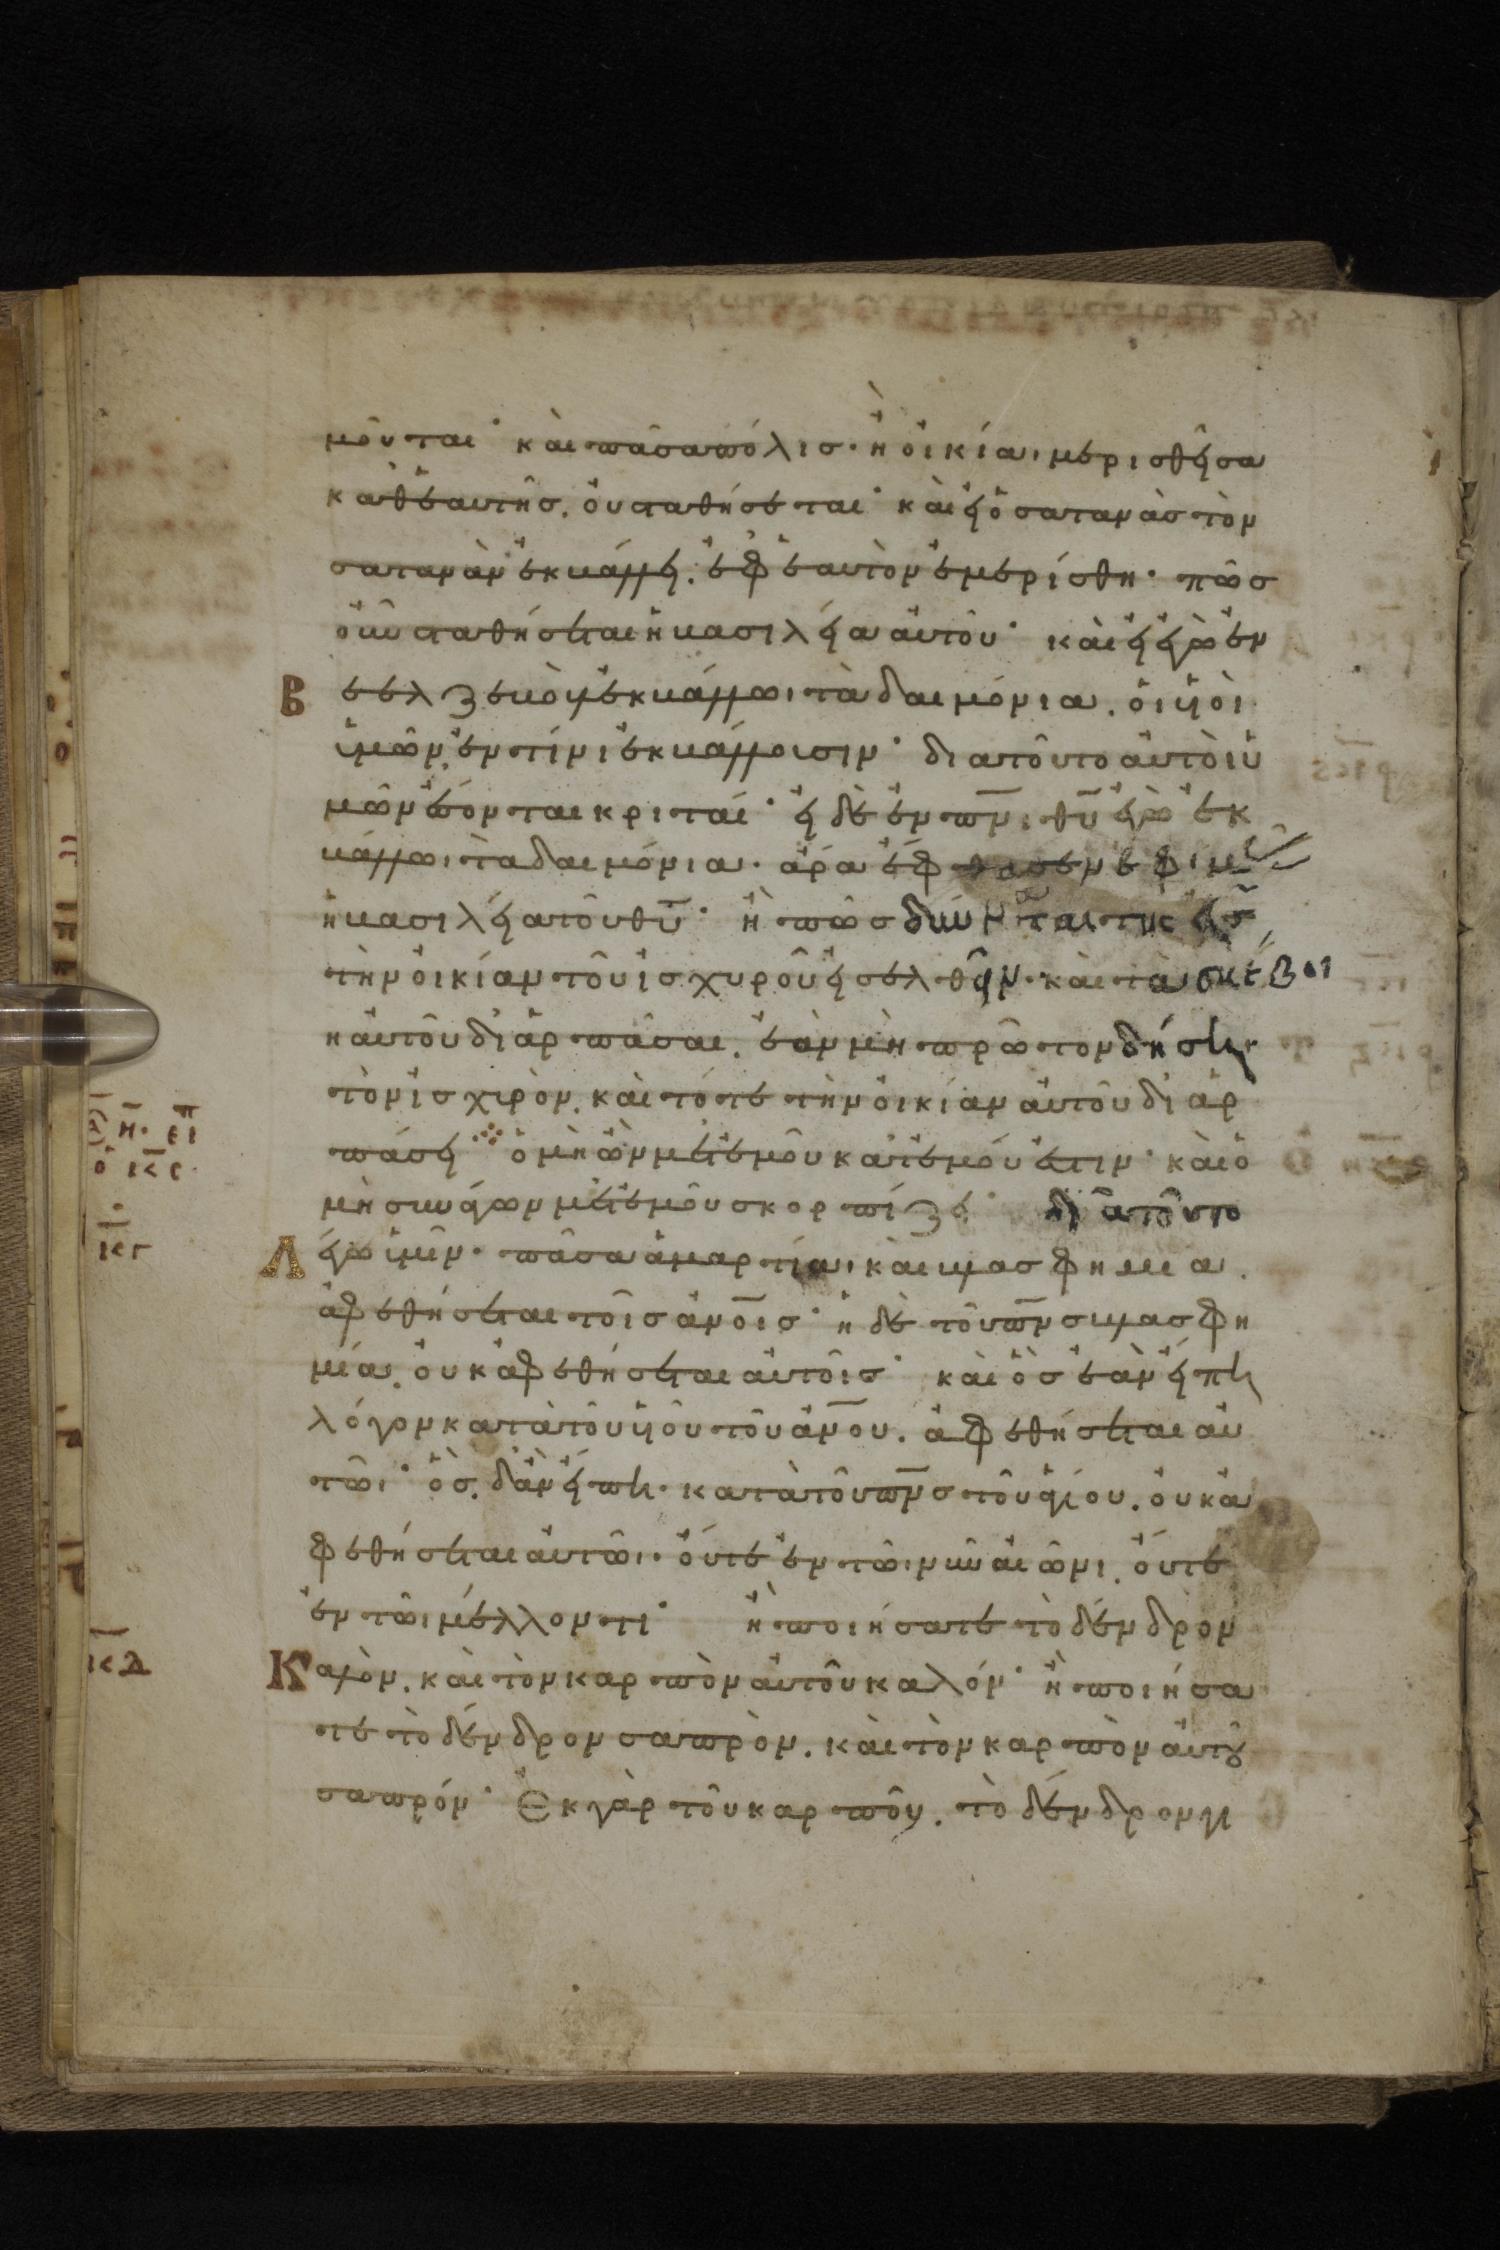 μοῦται· καὶ πᾶσα πόλις· ἢ οἰκία, μερισθεῖσα
καθ ἑαυτῆς. οὐ σταθήσεται· καὶ εἰ ὁ σατανὰς τὸν
σατανὰν ἐκβάλλει. ἐφ ἑαυτὸν ἐμερίσθη· πῶς
οὖν σταθήσεται ἡ βασιλεία αὐτοῦ· καὶ εἰ ἐγὼ ἐν
Βεελζεβοὺλ ἐκβάλλω, τὰ δαιμόνια. οἱ υἱοὶ
ὑμῶν, ἐν τίνι ἐκβάλλουσιν· διατοῦτο αὐτοὶ ὑ
μῶν ἔσονται κριταί· εἰ δὲ ἐν πν̅ι θυ̅ ἐγὼ ἐκ
βάλλω, τὰ δαιμόνια· ἄρα ἔφθασεν ἐφ ὑμᾶς
ἡ βασιλεία τοῦ θυ̅· ἢ πῶς δύναταί τις εἰς
τὴν οἰκίαν τοῦ ἰσχυροῦ εἰσελθεῖν· καὶ τὰ σκέβοι
η αὐτοῦ διαρπᾶσαι. ἐὰν μὴ πρῶτον δήσει
τὸν ἰσχυρὸν. καὶ τότε τὴν οἰκίαν αὐτοῦ διαρ
πάσει ὁ μὴ ὢν μετ ἐμοῦ κατ ἐμού ἐστιν· καὶ ὁ
μὴ συνάγων μετ ἐμοῦ σκορπίζει· διατοῦτο
Λέγω ὑμῖν· πᾶσα ἁμαρτία, καὶ βλασφημία.
ἀφεθήσεται τοῖς ἀν̅οις· ἡ δὲ τοῦ πν̅ς βλασφη
μία. οὐκ ἀφεθήσεται αὐτοῖς· καὶ ὃς ἐὰν εἴπη
λόγον κατὰ τοῦ υἱοῦ τοῦ ἀν̅ου. ἀφεθήσεται αὐ
τῶι· ὃς. δ ἂν εἴπη· κατὰ τοῦ πν̅ς τοῦ ἁγίου. οὐκ ἀ
φεθήσεται αὐτῶι· οὔτε ἐν τῶι νῦν αἰῶνι. οὔτε
ἐν τῶι μέλλοντι· ἢ ποιήσατε τὸ δένδρον
Καλὸν. καὶ τὸν καρπὸν αὐτοῦ καλόν· ἢ ποιήσα
τε τὸ δένδρον σαπρὸν. καὶ τὸν καρπὸν αὐτοῦ
σαπρόν· Ἐκ γὰρ τοῦ καρποῦ. τὸ δένδρον γι